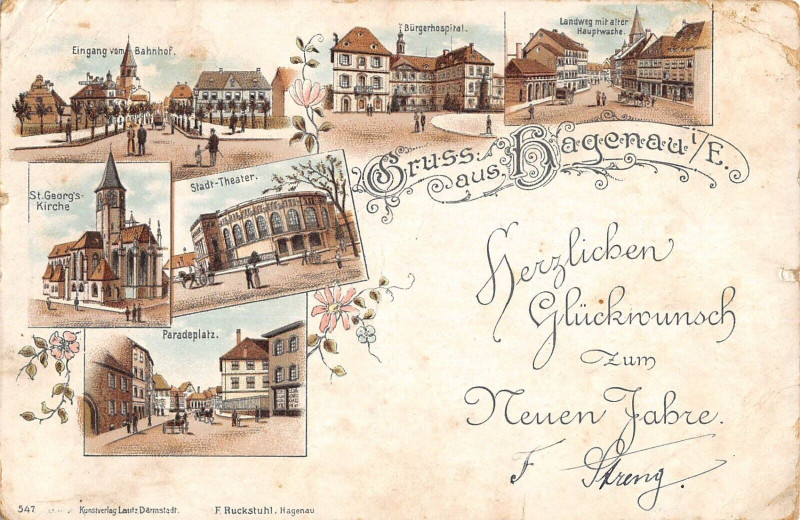 Eingang vom Bahnhof.
Bürgerhospital.
Landweg mit alter
Hauptwache.
Gruss aus Hagenau i/E.
St. Georg's-
Kirche
Stadt-Theater.
Paradeplatz.
Herzlichen
Glückwunsch
zum
Neuen Jahre.
F Streng.
547
Kunstverlag Lautz Darmstadt.
F. Ruckstuhl, Hagenau